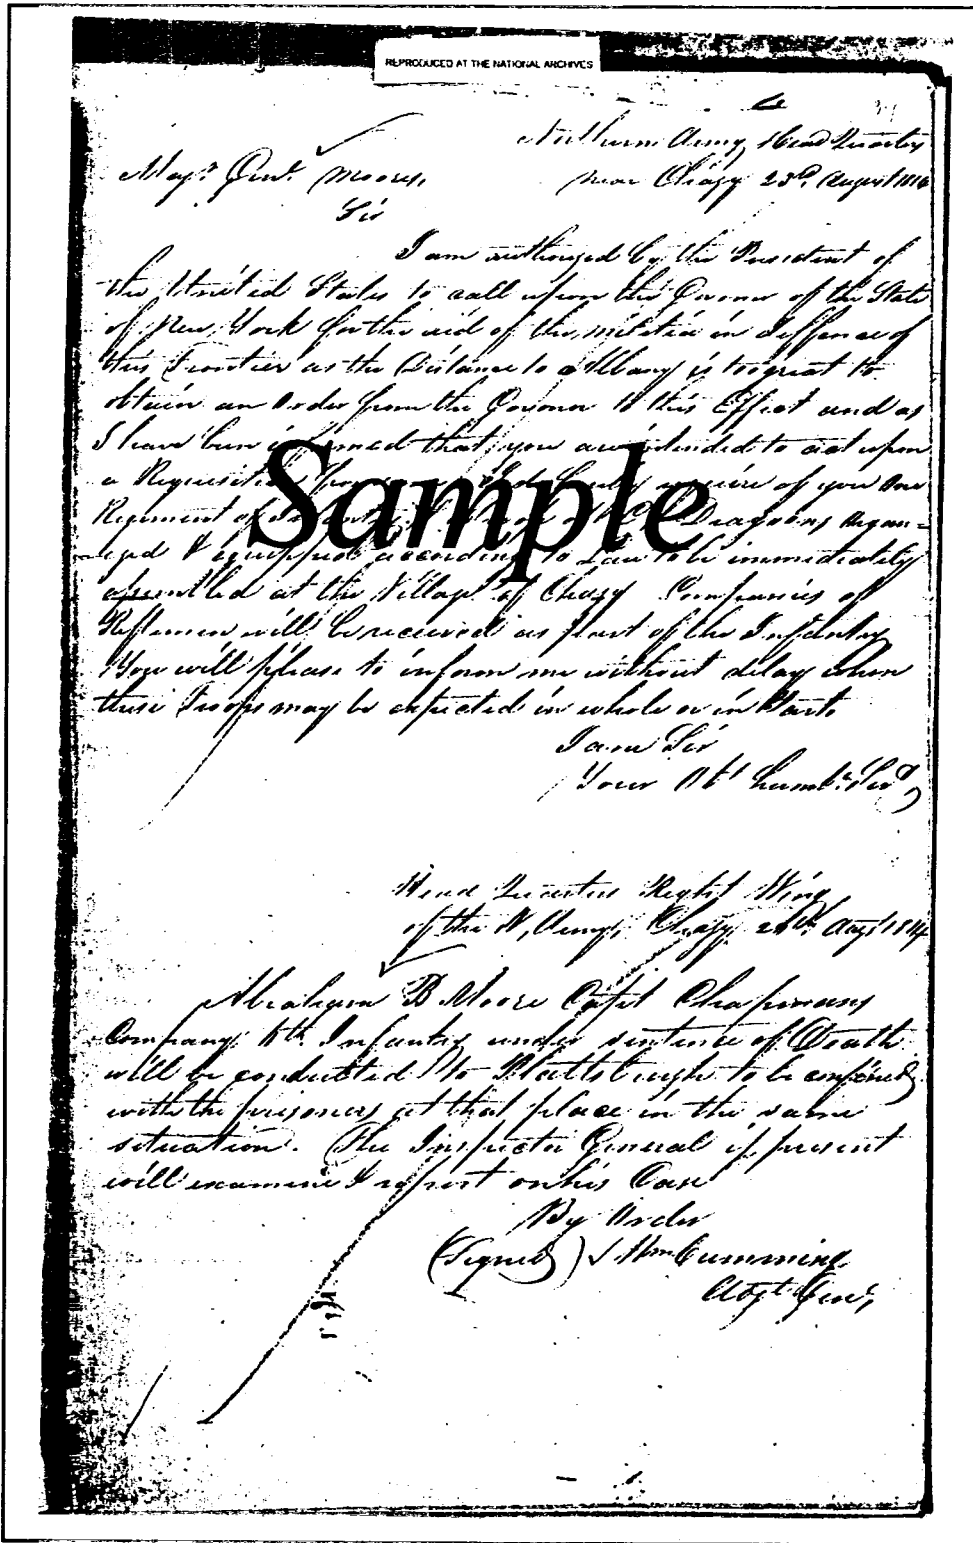 REPRODUCED AT THE NATIONAL ARCHIVES
Northern Army, Head Quarters
Majr. Genl. Mooers, near Chazy 23d. August 181
Sir
I am authorized by the President of
the United States to call upon the Govenor of the State
of New, York for the aid of the, militia in deffence of
this Frontier as the Distance to Albany is too great to
obtain an Order from the Govenor to this Effect and as
I have been med that you are intended to act upon
a Requisition require of you One
Regiment of Dragoons Organ=
ized & equipped according to Law to be immediately
assembled at the Village of Chazy Companies of
Reflemen will be received as part of the Infantry
You will please to inform me without delay when
these Troops may be expected in whole or in Part.
I am Sir
Your Obt humbe. Servt,
Sample
Head Quarters Right Wing
of the N, Army, Chazy, Augt 1814
Abraham B Moore Capt Chapmans
Company, Infantry under sentence of Death
will be conducted to Plattsburgh to be confined
with the prisoners at that place in the same
situation. The Inspector General if present
will examine & report on his Case
By Order
(Signed) Wm Cumming
Adjt. Genl,